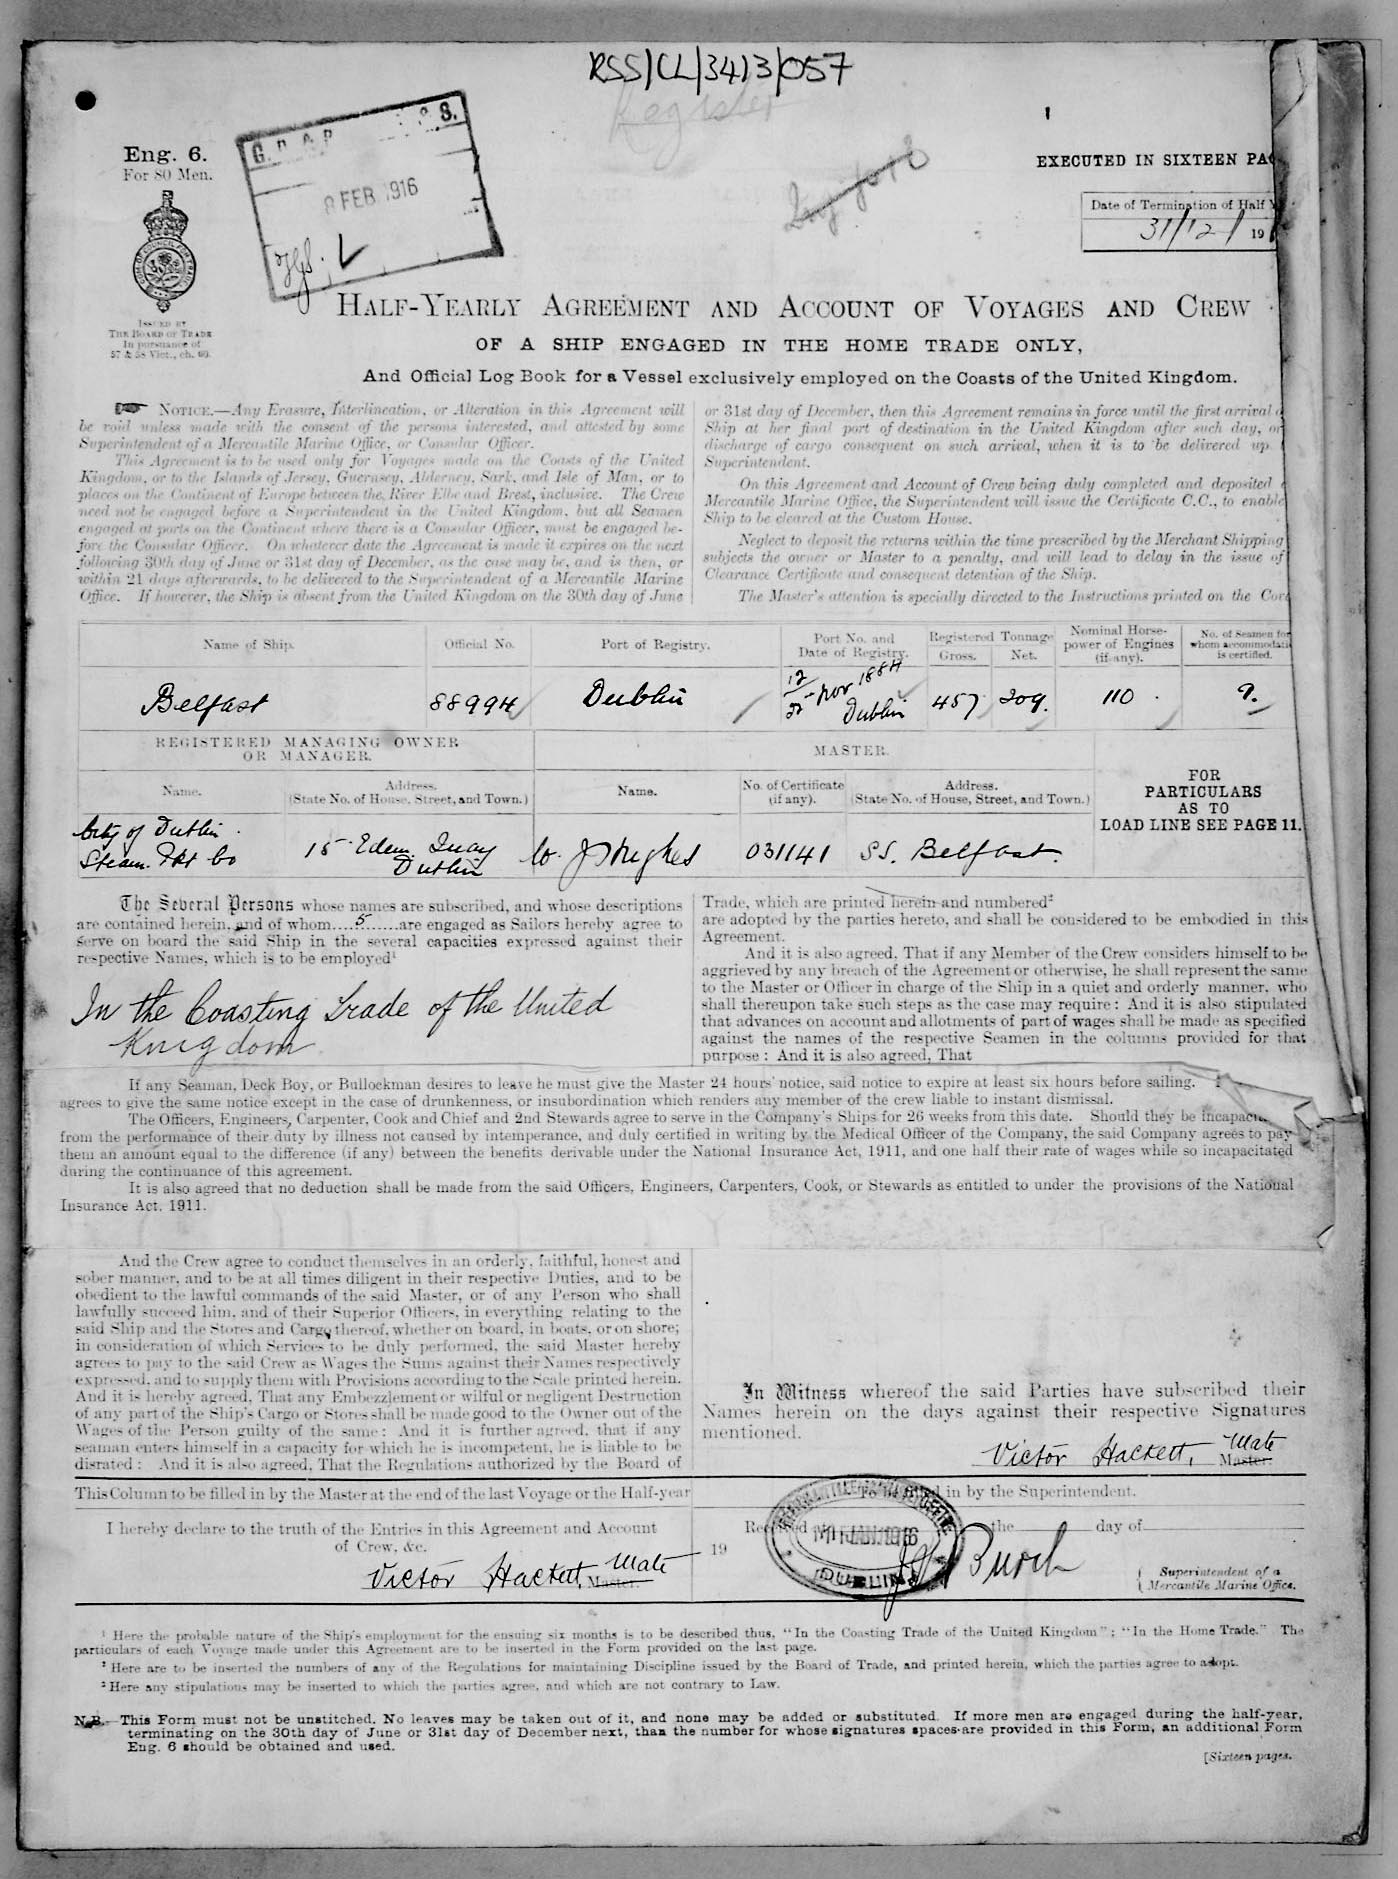 RSS/CL/3413/057
Register
Eng. 6.
For 80 Men.
8 FEB. 1916
EXECUTED IN SIXTEEN
Date of Termination of Half
31/12/ 19
ISSUED BY
THE BOARD OF TRADE
In pursuance of
57 & 58 Vict., ch. 60.
HALF-YEARLY AGREEMENT AND ACCOUNT OF VOYAGES AND CREW
OF A SHIP ENGAGED IN THE HOME TRADE ONLY,
And Official Log Book for a Vessel exclusively employed on the Coasts of the United Kingdom.
NOTICE.—Any Erasure, Interlineation, or Alteration in this Agreement will
be void unless made with the consent of the persons interested, and attested by some
Superintendent of a Mercantile Marine Office, or Consular Officer.
This Agreement is to be used only for Voyages made on the Coasts of the United
Kingdom, or to the Islands of Jersey, Guernsey, Alderney, Sark, and Isle of Man, or to
places on the Continent of Europe between the River Elbe and Brest, inclusive. The Crew
need not be engaged before a Superintendent in the United Kingdom, but all Seamen
engaged at ports on the Continent where there is a Consular Officer, must be engaged be-
fore the Consular Officer. On whatever date the Agreement is made it expires on the next
following 30th day of June or 31st day of December, as the case may be, and is then, or
within 21 days afterwards, to be delivered to the Superintendent of a Mercantile Marine
Office. If however, the Ship is absent from the United Kingdom on the 30th day of June
or 31st day of December, then this Agreement remains in force until the first arrival
Ship at her final port of destination in the United Kingdom after such day, or
discharge of cargo consequent on such arrival, when it is to be delivered up
Superintendent.
On this Agreement and Account of Crew being duly completed and deposited
Mercantile Marine Office, the Superintendent will issue the Certificate C.C., to enable
Ship to be cleared at the Custom House.
Neglect to deposit the returns within the time prescribed by the Merchant Shipping
subjects the owner or Master to a penalty, and will lead to delay in the issue of
Clearance Certificate and consequent detention of the Ship.
The Master's attention is specially directed to the Instructions printed on the
Name of Ship. Official No. Port of Registry. Port No. and Date of Registry. Registered Tonnage Gross. Net. Nominal Horse-power of Engines (if any). No. of Seamen for whom accommodation is certified.
Belfast 88994 Dublin 12/22 Nov 1884 Dublin 457 209 110 9.
REGISTERED MANAGING OWNER OR MANAGER. MASTER.
Name. Address. (State No. of House, Street, and Town.) Name. No. of Certificate (if any). Address. (State No. of House, Street, and Town.)
City of Dublin Steam Pkt Co 15 Eden Quay Dublin W. J Hughes 031141 S.S. Belfast.
FOR
PARTICULARS
AS TO
LOAD LINE SEE PAGE 11.
The Several Persons whose names are subscribed, and whose descriptions
are contained herein, and of whom 5 are engaged as Sailors hereby agree to
serve on board the said Ship in the several capacities expressed against their
respective Names, which is to be employed¹
In the Coasting Trade of the United
Kingdom
Trade, which are printed herein and numbered²
are adopted by the parties hereto, and shall be considered to be embodied in this
Agreement.
And it is also agreed, That if any Member of the Crew considers himself to be
aggrieved by any breach of the Agreement or otherwise, he shall represent the same
to the Master or Officer in charge of the Ship in a quiet and orderly manner, who
shall thereupon take such steps as the case may require: And it is also stipulated
that advances on account and allotments of part of wages shall be made as specified
against the names of the respective Seamen in the columns provided for that
purpose: And it is also agreed, That
If any Seaman, Deck Boy, or Bullockman desires to leave he must give the Master 24 hours' notice, said notice to expire at least six hours before sailing.
agrees to give the same notice except in the case of drunkenness, or insubordination which renders any member of the crew liable to instant dismissal.
The Officers, Engineers, Carpenter, Cook and Chief and 2nd Stewards agree to serve in the Company's Ships for 26 weeks from this date. Should they be
from the performance of their duty by illness not caused by intemperance, and duly certified in writing by the Medical Officer of the Company, the said Company agrees to pay
them an amount equal to the difference (if any) between the benefits derivable under the National Insurance Act, 1911, and one half their rate of wages while so incapacitated
during the continuance of this agreement.
It is also agreed that no deduction shall be made from the said Officers, Engineers, Carpenters, Cook, or Stewards as entitled to under the provisions of the National
Insurance Act, 1911.
And the Crew agree to conduct themselves in an orderly, faithful, honest and
sober manner, and to be at all times diligent in their respective Duties, and to be
obedient to the lawful commands of the said Master, or of any Person who shall
lawfully succeed him, and of their Superior Officers, in everything relating to the
said Ship and the Stores and Cargo thereof, whether on board, in boats, or on shore;
in consideration of which Services to be duly performed, the said Master hereby
agrees to pay to the said Crew as Wages the Sums against their Names respectively
expressed, and to supply them with Provisions according to the Scale printed herein.
And it is hereby agreed, That any Embezzlement or wilful or negligent Destruction
of any part of the Ship's Cargo or Stores shall be made good to the Owner out of the
Wages of the Person guilty of the same: And it is further agreed, that if any
seaman enters himself in a capacity for which he is incompetent, he is liable to be
disrated: And it is also agreed, That the Regulations authorized by the Board of
In Witness whereof the said Parties have subscribed their
Names herein on the days against their respective Signatures
mentioned.
Victor Hackett, Mate
Master.
This Column to be filled in by the Master at the end of the last Voyage or the Half-year
I hereby declare to the truth of the Entries in this Agreement and Account
of Crew, &c.
Victor Hackett, Mate
Master.
in by the Superintendent.
the day of
19
MERCANTILE MARINE OFFICE
11 JAN. 1916
DUBLIN
Superintendent of a
Mercantile Marine Office.
¹ Here the probable nature of the Ship's employment for the ensuing six months is to be described thus, "In the Coasting Trade of the United Kingdom"; "In the Home Trade." The
particulars of each Voyage made under this Agreement are to be inserted in the Form provided on the last page.
² Here are to be inserted the numbers of any of the Regulations for maintaining Discipline issued by the Board of Trade, and printed herein, which the parties agree to adopt.
³ Here any stipulations may be inserted to which the parties agree, and which are not contrary to Law.
N.B.—This Form must not be unstitched. No leaves may be taken out of it, and none may be added or substituted. If more men are engaged during the half-year,
terminating on the 30th day of June or 31st day of December next, than the number for whose signatures spaces are provided in this Form, an additional Form
Eng. 6 should be obtained and used.
[Sixteen pages.